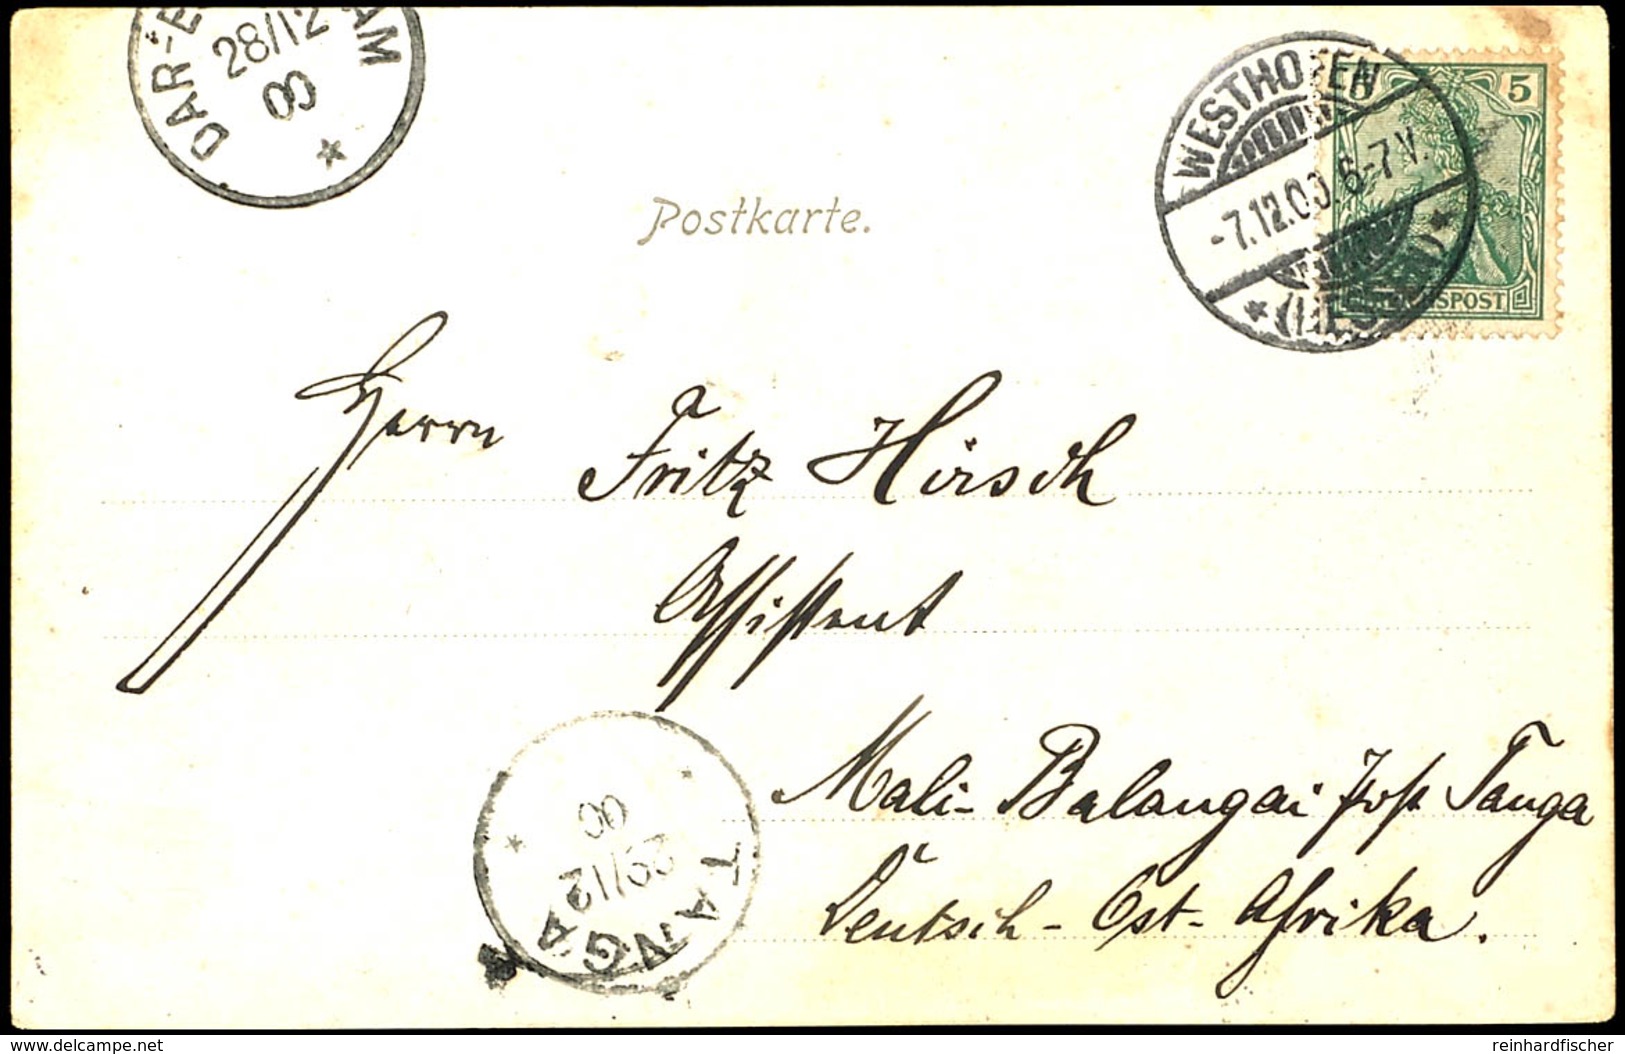 DAR-E
AM
28/12
00
WESTHOFEN
-7.12.00. 6-7V.
(HESSEN)
5
REICHSPOST
Postkarte.
Herrn Fritz Hirsch
Assistent
Mali-Balangai Post Tanga
Deutsch-Ost-Afrika.
TANGA
29/12
00
www.delcampe.net
reinhardfischer